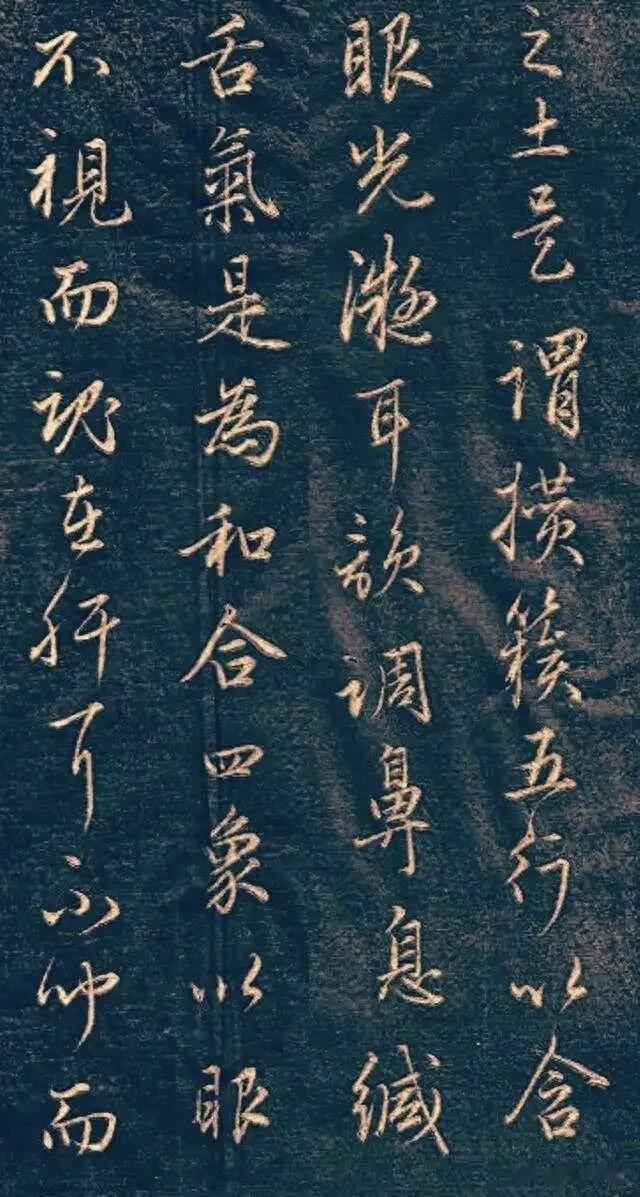 之土是謂攢簇五行以含
眼光凝耳韻調鼻息緘
舌氣是為和合四象以眼
不視而魂在肝耳不聞而